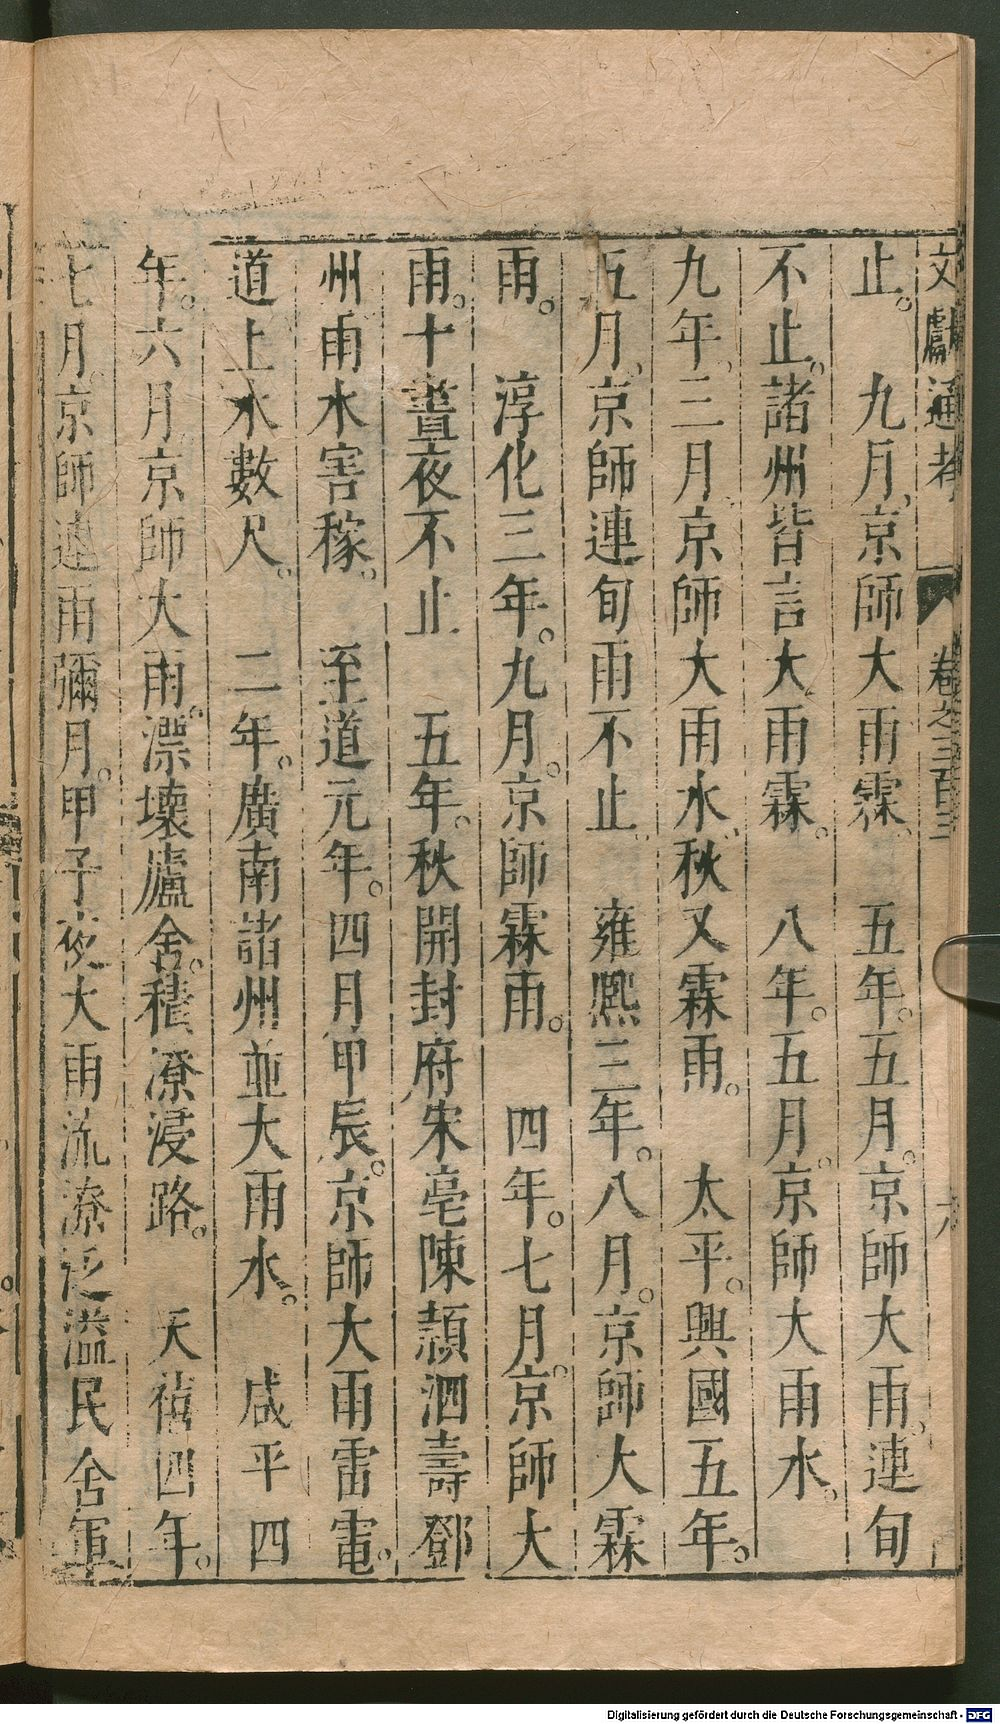 文獻通考 卷之三百三 六
止。 九月、京師大雨霖。 五年。五月。京師大雨。連旬
不止。諸州皆言大雨霖。 八年。五月。京師大雨水。
九年。三月、京師大雨水、秋又霖雨。 太平。興國五年。
五月、京師連旬雨不止。 雍熙三年。八月。京師大霖
雨。 淳化三年。九月。京師霖雨。 四年。七月。京師大
雨。十晝夜不止 五年。秋開封府宋亳陳潁泗壽鄧
州雨水害稼。 至道元年。四月甲辰。京師大雨雷電。
道上水數尺。 二年。廣南諸州並大雨水。 咸平四
年。六月京師大雨。漂壞廬舍。積潦浸路。 天禧四年。
七月京師連雨彌月。甲子夜大雨流潦泛溢民舍軍
Digitalisierung gefördert durch die Deutsche Forschungsgemeinschaft - DFG